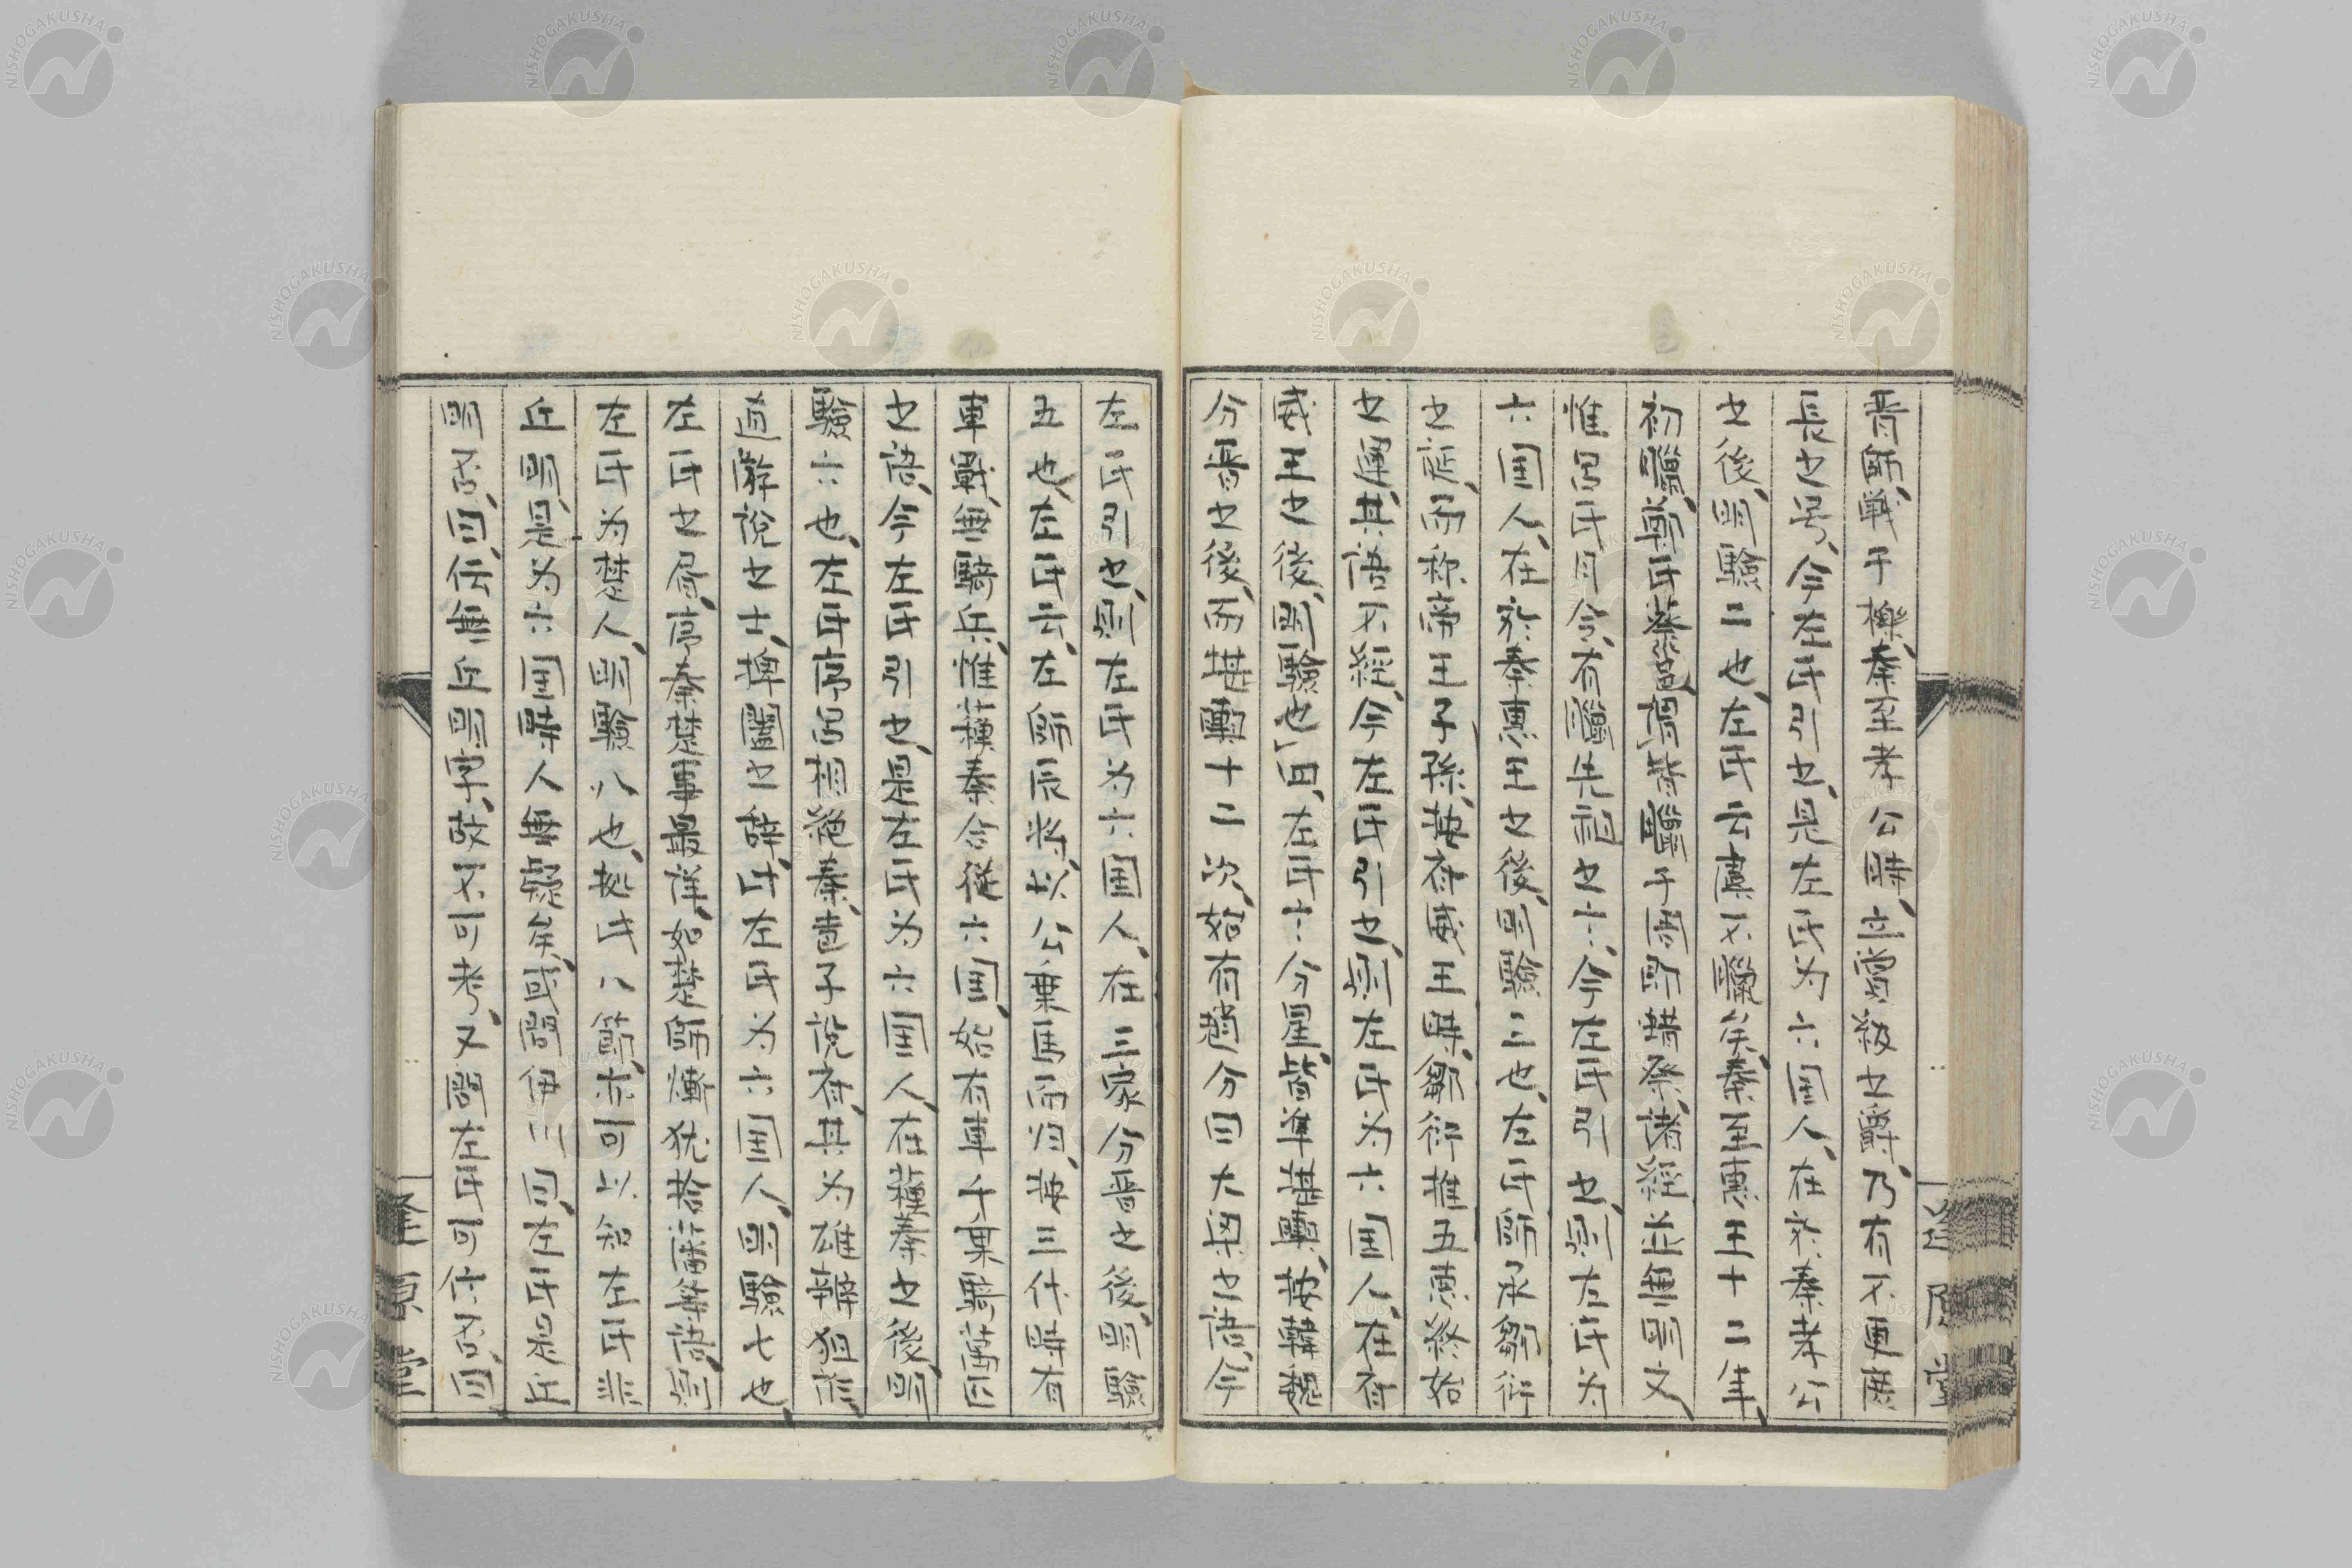 晋師戦于櫟、秦至孝公時、立賞級之爵、乃有不更庶
長之号、今左氏引之、是左氏为六国人、在於秦孝公
之後、明驗二也、左氏云虞不臘矣、秦至惠王十二年、
初臘、鄭氏蔡邕、謂皆臘于周即蜡祭、諸経並無明文、
惟呂氏月令、有臘先祖之言、今左氏引之、則左氏为
六国人、在於秦惠王之後、明驗三也、左氏師承鄒衍
之誕、而称帝王子孫、按斉威王時、鄒衍推五惪終始
之運、其語不経、今左氏引之、則左氏为六国人、在斉
威王之後、明驗四也、左氏言分星、皆準堪輿、按韓魏
分晋之後、而堪輿十二次、始有趙分曰大梁之語、今
左氏引之、則左氏为六国人、在三家分晋之後、明驗
五也、左氏云、左師辰将以公乗馬而归、按三代時有
車戰、無騎兵、惟蘇秦合従六国、始有車千乗騎萬匹
之語、今左氏引之、是左氏为六国人、在蘇秦之後、明
驗六也、左氏序呂相絶秦、声子説斉、其为雄辯狙詐、
真游説之士、捭闔之辞、此左氏为六国人、明驗七也、
左氏之屑、序秦楚事最詳、如楚師熸、犹拾瀋等語、則
左氏为楚人、明驗八也、拠此八節、亦可以知左氏非
丘明、是为六国時人、無疑矣、或問伊川曰、左氏是丘
明否、曰、伝無丘明字、故不可考、又問左氏可信否、曰